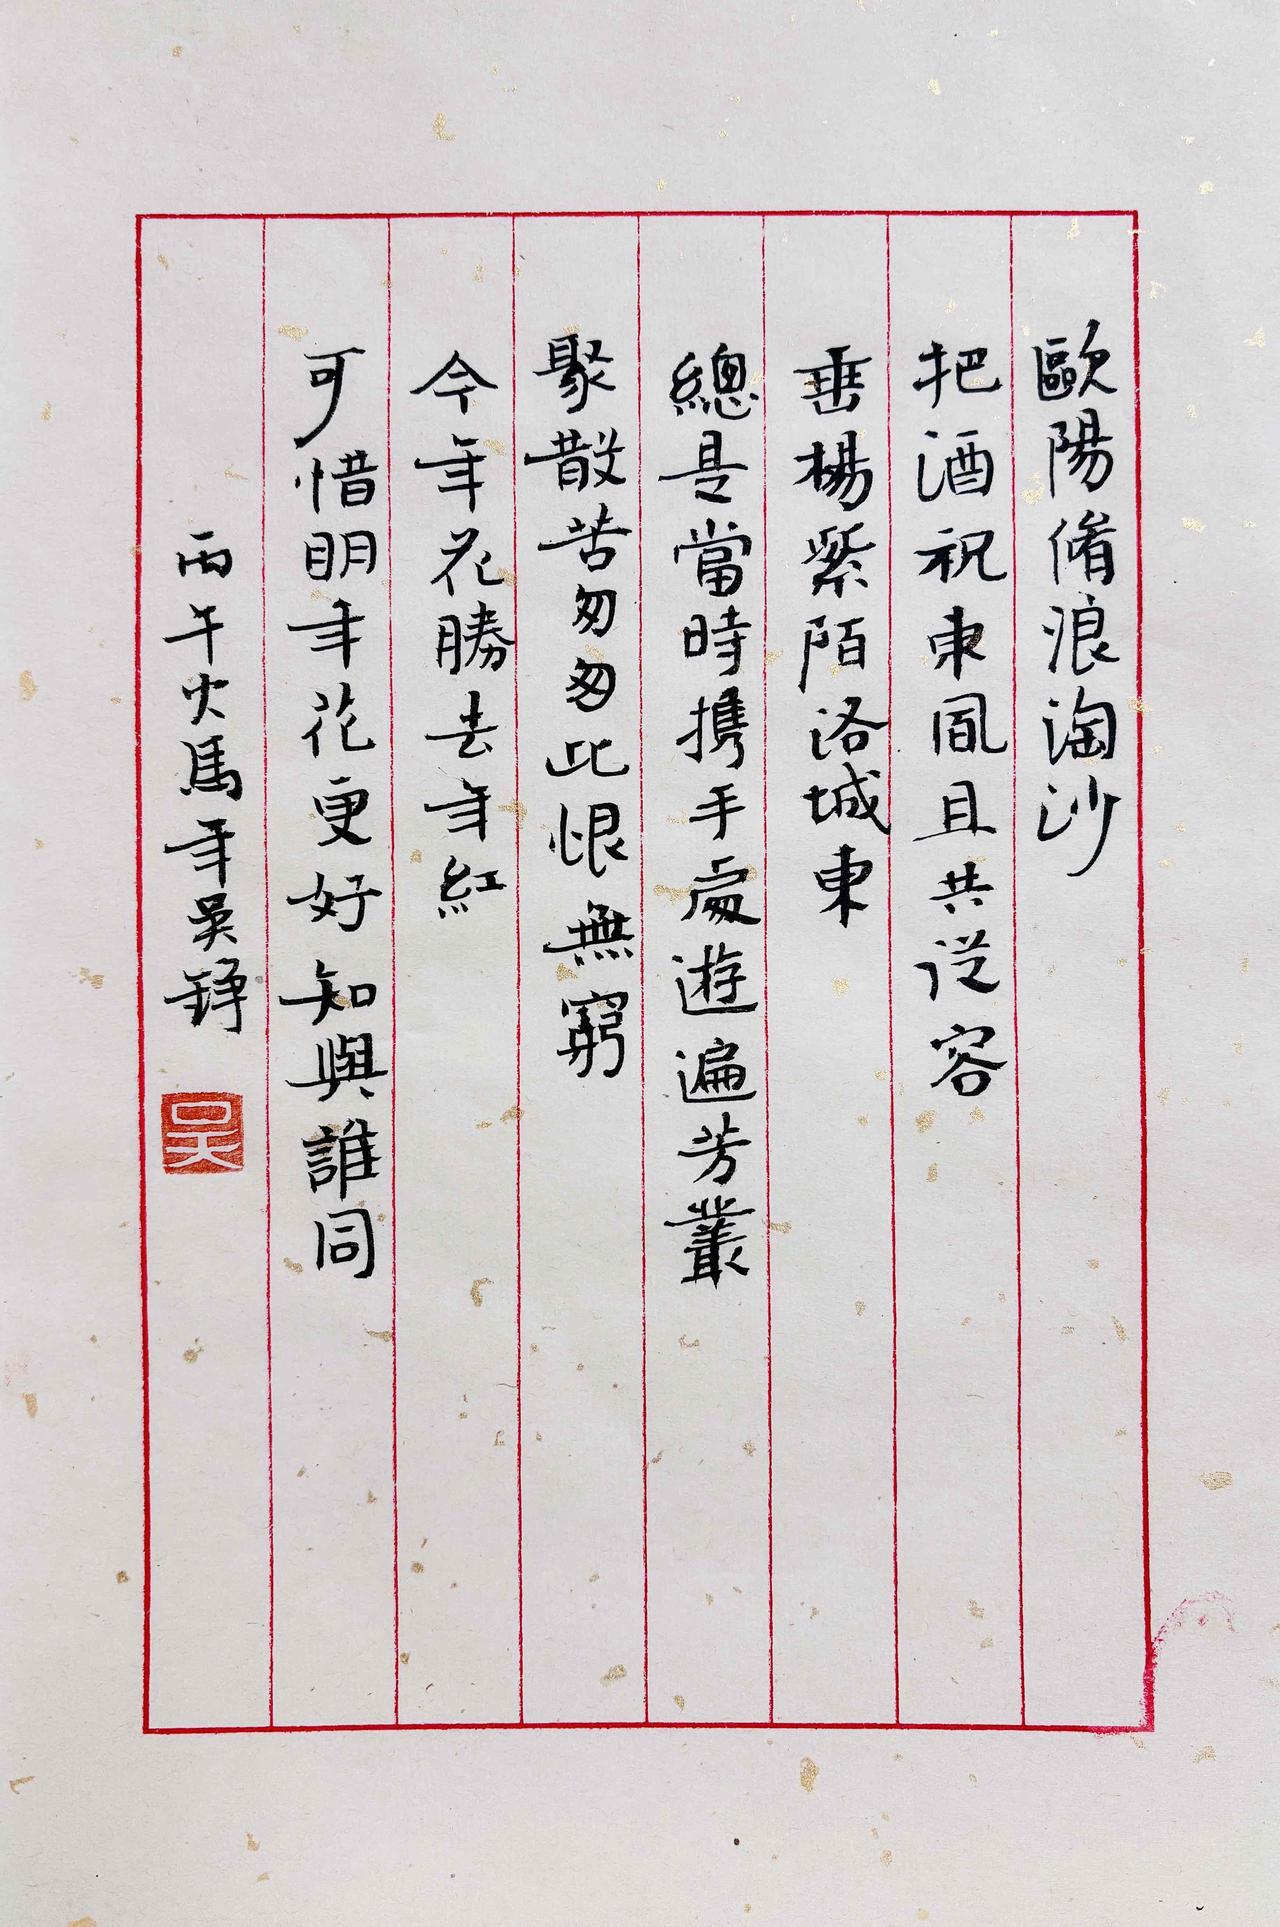 歐陽脩浪淘沙
把酒祝東風且共從容
垂楊紫陌洛城東
總是當時攜手處遊遍芳叢
聚散苦匆匆此恨無窮
今年花勝去年紅
可惜明年花更好知與誰同
丙午火馬年吳錚
吳